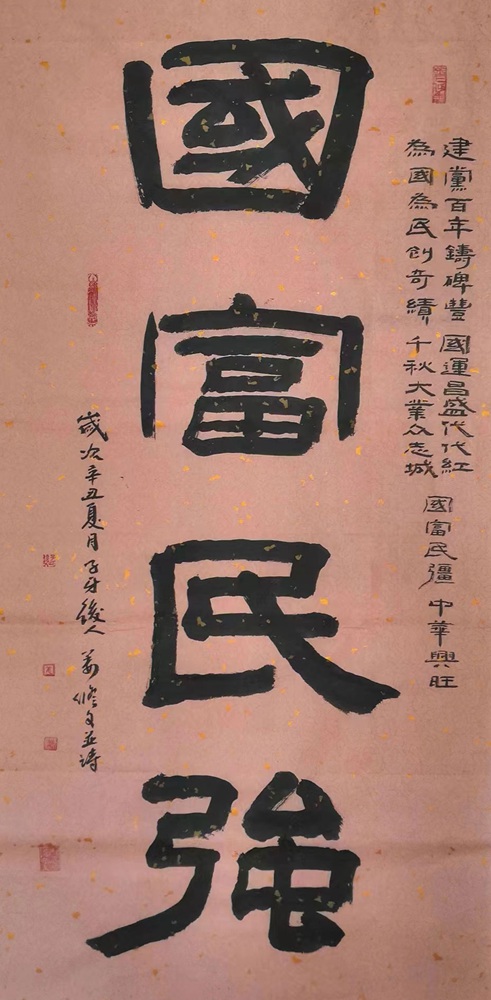 建黨百年鑄碑豐 國運昌盛代代紅
為國為民创奇績 千秋大業众志城
國富民彊 中華興旺
國富民強
歲次辛丑夏月子牙後人 姜修文並詩